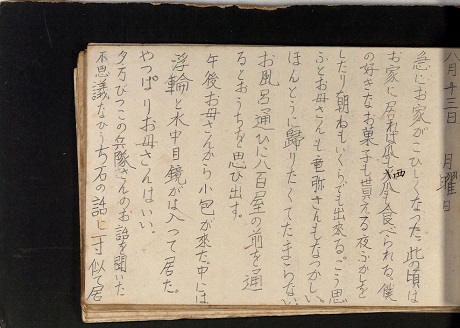 八月十三日　月曜日
急にお家がこひしくなった。此の頃は
お家に居れば瓜も西瓜も食べられる、僕
の好きなお菓子も貰える夜ふかしを
したり朝ねもいくらでも出来る。こう思
ふとお母さんも重弥さんもなつかしい。
ほんとうに歸りたくてたまらない
お風呂通ひに八百屋の前を通
るとおうちを思ひ出す。
午後お母さんから小包が来た。中には
浮輪と水中目鏡がは入って居た。
やっぱりお母さんはいい。
夕方びっこの兵隊さんのお話を聞いた
不思議なひうち石の話に一寸似て居